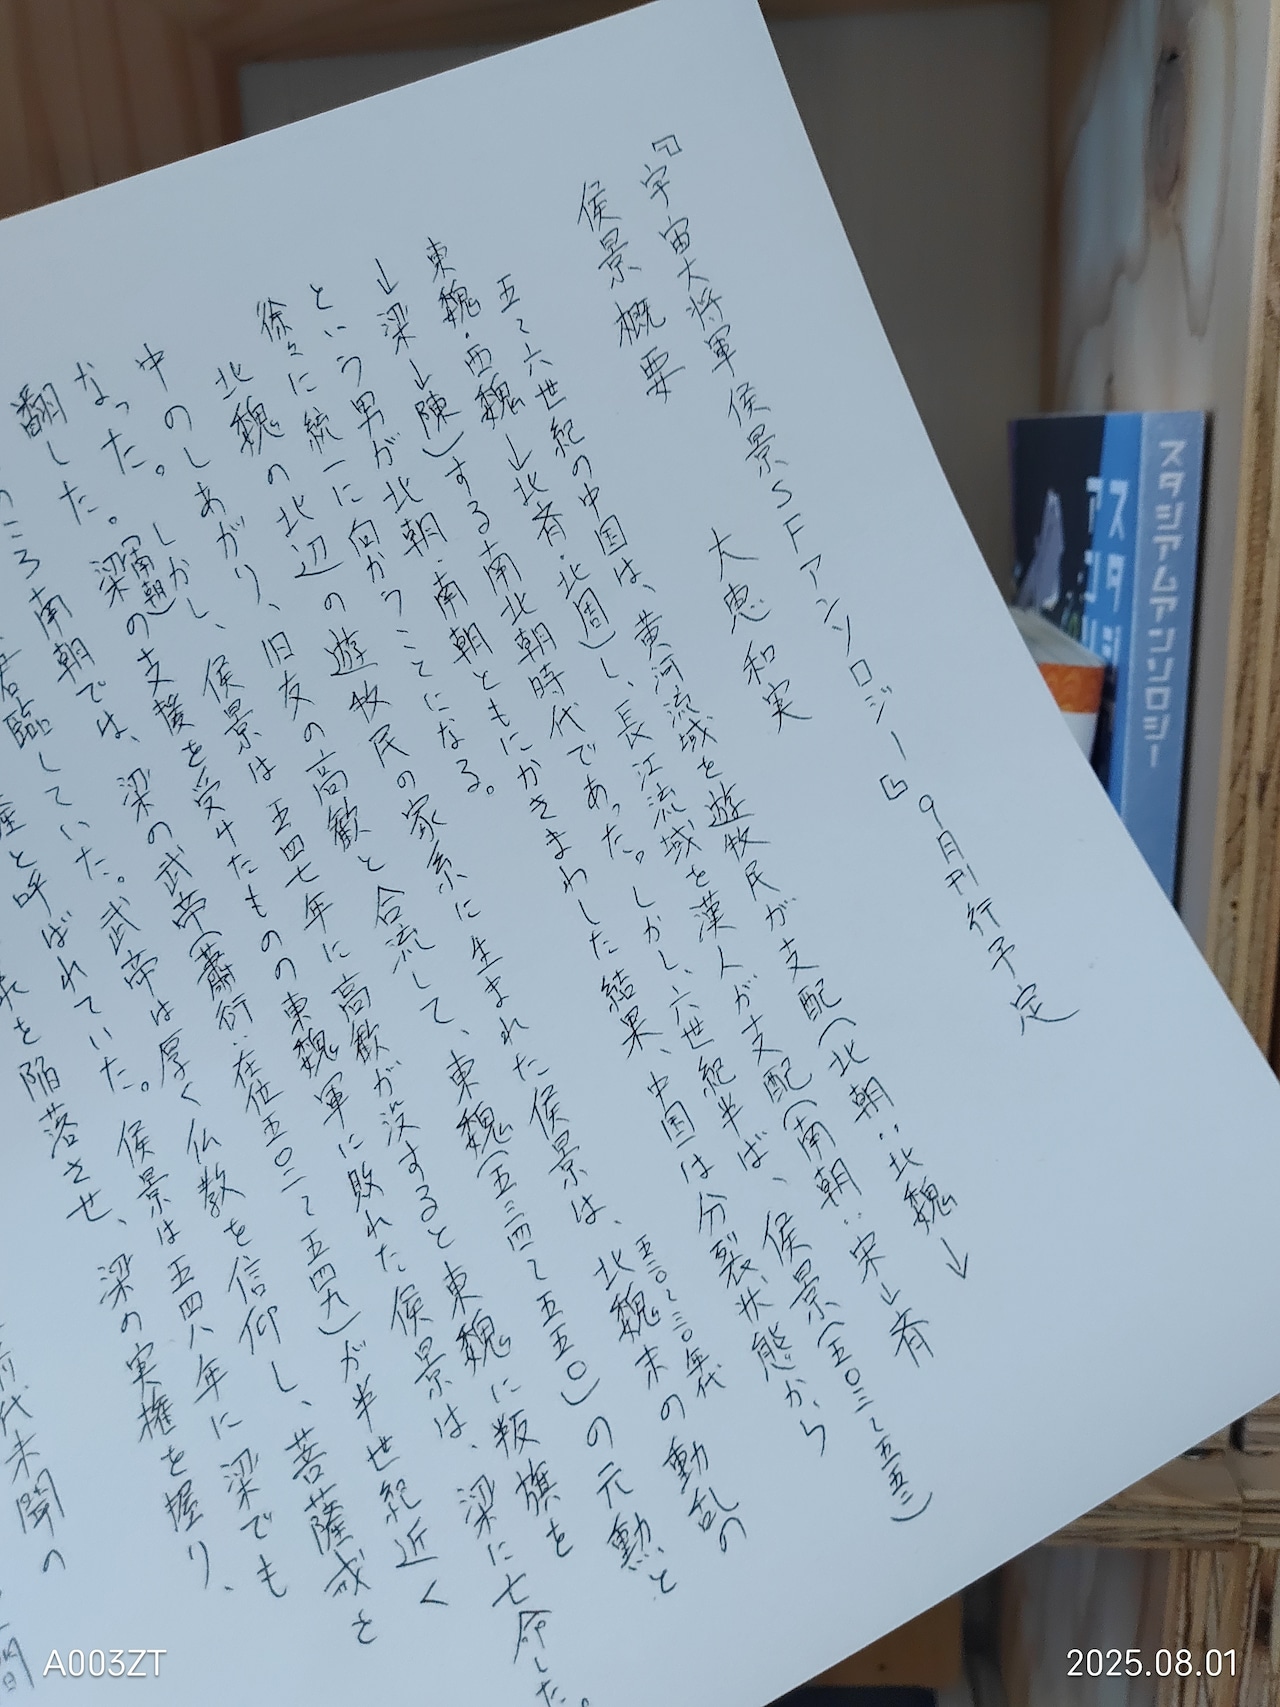 『宇宙大将軍侯景SFアンソロジー』9月刊行予定
侯景概要 大恵和実
五〜六世紀の中国は、黄河流域を遊牧民が支配(北朝:北魏→
東魏・西魏→北斉・北周)し、長江流域を漢人が支配(南朝:宋→斉
→梁→陳)する南北朝時代であった。しかし、六世紀半ば、侯景(五〇三〜五五二)
という男が北朝・南朝ともにかきまわした結果、中国は分裂状態から
徐々に統一に向かうことになる。
北魏の北辺の遊牧民の家系に生まれた侯景は、五二〇〜三〇年代北魏末の動乱の
中のしあがり、旧友の高歓と合流して、東魏(五三四〜五五〇)の元勲と
なった。しかし、侯景は五四七年に高歓が没すると東魏に叛旗を
翻した。梁(南朝)の支援を受けたものの東魏軍に敗れた侯景は、梁に亡命した。
ころ南朝では、梁の武帝(蕭衍:在位五〇二〜五四九)が半世紀近く
君臨していた。武帝は厚く仏教を信仰し、菩薩戒を
薩と呼ばれていた。侯景は五四八年に梁でも
を陥落させ、梁の実権を握り、
前代未聞の
間
スタジアムアンソロジー
スタジ
アンソ
A003ZT
2025.08.01